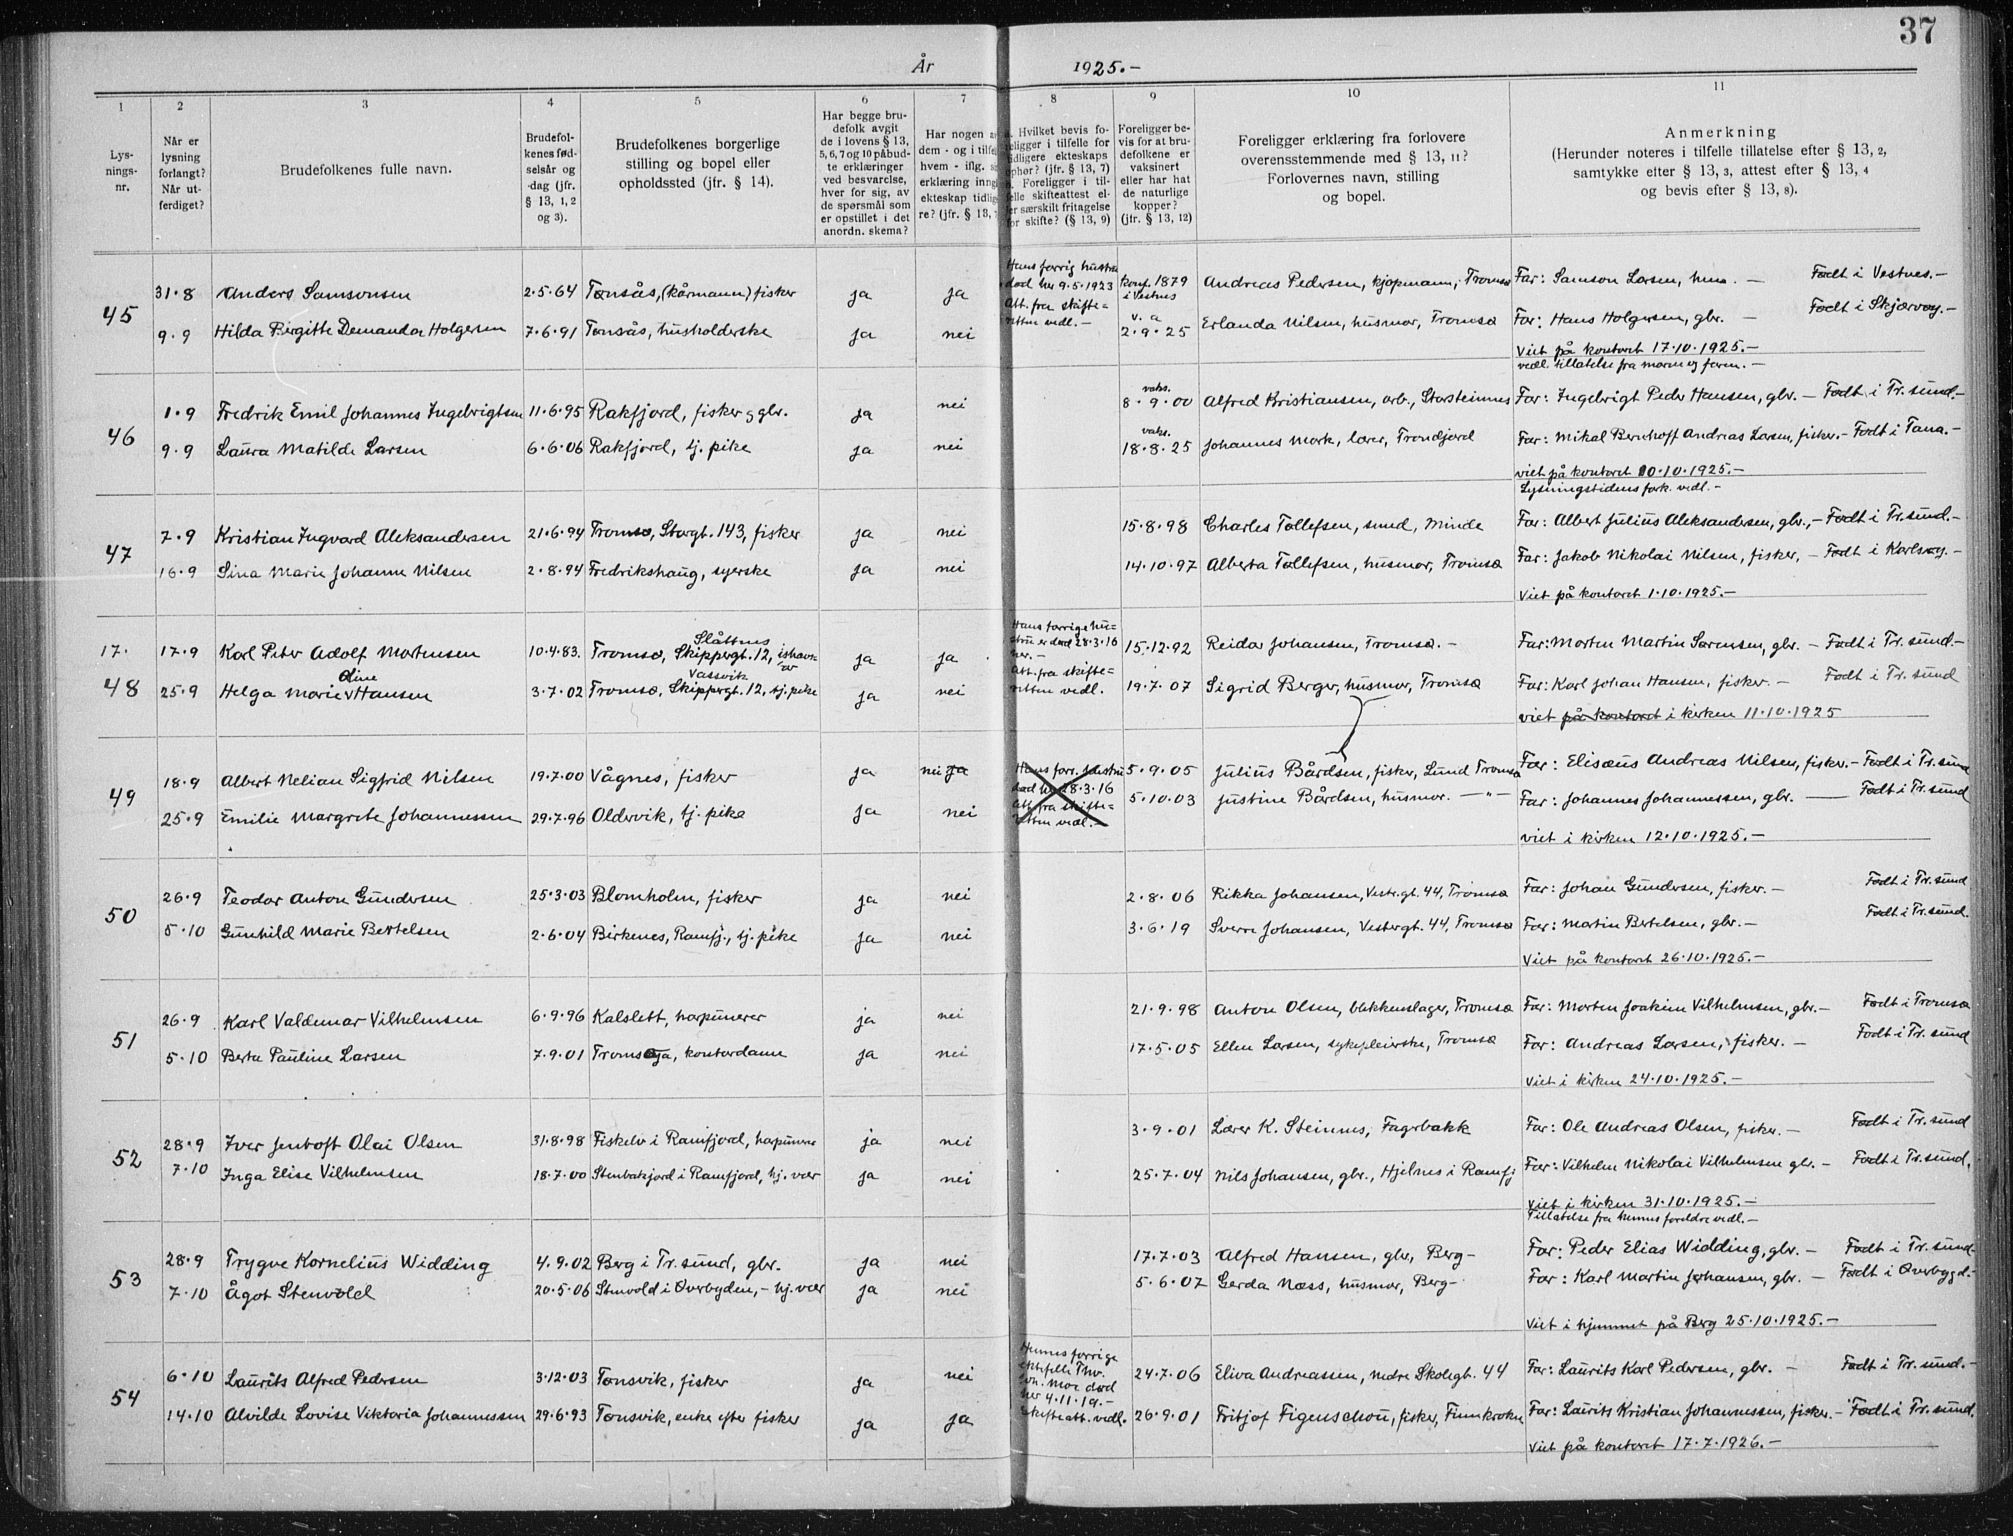 37
År 1925.-
1 2 3 4 5 6 7 8 9 10 11
Lys-
nings-
nr.
Når er
lysning
forlangt?
Når ut-
ferdiget?
Brudefolkenes fulle navn.
Brudefol-
kenes fød-
selsår og
-dag (jfr.
§ 13, 1, 2
og 3).
Brudefolkenes borgerlige
stilling og bopel eller
opholdssted (jfr. § 14).
Har begge bru-
defolk avgit
de i lovens § 13,
5, 6, 7 og 10 påbud-
te erklæringer
ved besvarelse,
hver for sig, av
de spørsmål som
er opstillet i det
anordn. skema?
Har nogen a
dem - og i tilfe
hvem - iflg. s
erklæring inng
ekteskap tidlig
re? (jfr. § 13, 7
Hvilket bevis fo-
religger i tilfelle for
tidligere ekteskaps
ophør? (jfr. § 13, 7)
Foreligger i til-
felle skifteattest el-
er særskilt fritagelse
for skifte? (§ 13, 9)
Foreligger be-
vis for at bru-
defolkene er
vaksinert
eller har hat
de naturlige
kopper?
(jfr. § 13, 12)
Foreligger erklæring fra forlovere
overensstemmende med § 13, 11?
Forlovernes navn, stilling
og bopel.
Anmerkning
(Herunder noteres i tilfelle tillatelse efter § 13, 2,
samtykke efter § 13, 3, attest efter § 13, 4
og bevis efter § 13, 8).
45
31·8 Anders Samsonsen 2·5·64 Tønsås, (kårmann) fisker ja ja
Hans forrig hustru
død her 9·5·1923
Att. fra skifte-
retten vedl.-
konf. 1879
i Vestnes
Andreas Pedersen, kjøpmann, Tromsø Far: Samson Larsen, hms. - Født i Vestnes.-
9·9 Hilda Birgitte Demanda Holgersen 7·6·91 Tønsås, husholderske ja nei
v. a
2·9·25 Erlanda Nilsen, husmor, Tromsø Far: Hans Holgersen, gbr. - Født i Skjærvøy.-
Viet på kontoret 17·10·1925.-
vedl. tillatelse fra moren og faren.-
46
1·9 Fredrik Emil Johannes Ingebrigtsen 11·6·95 Rakfjord, fisker og gbr. ja nei
vaks.
8·9·00 Alfred Kristiansen, arb., Storsteinnes Far: Ingebrigt Peder Hansen, gbr. - Født i Tr.sund.-
9·9 Laura Matilde Larsen 6·6·06 Rakfjord, tj. pike ja nei
vaks.
18·8·25 Johannes Mork, lærer, Tromdjord Far: Mikal Bernhoft Andreas Larsen, fisker.- Født i Tana.-
viet på kontoret 10·10·1925.-
Lysningstidens fork. vedl.-
47
7·9 Kristian Ingvard Aleksandersen 21·6·94 Tromsø, Storgt. 143, fisker ja nei 15·8·98 Charles Tollefsen, smed, Minde Far: Albert Julius Aleksandersen, gbr.,- Født i Tr.sund.-
16·9 Sina Marie Johanne Nilsen 2·8·94 Fredrikshaug, syerske ja nei 14·10·97 Alberta Tollefsen, husmor, Tromsø Far: Jakob Nikolai Nilsen, fisker, - Født i Karlsøy.-
Viet på kontoret 1·10·1925.-
17.
48
Slåttnes
17·9 Karl Peter Adolf Mortensen 10·4·83. Tromsø, Skippergt. 12, ishavs- ja ja
Hans forrige hu-
stru er død 28·3·16
her.-
Att. fra skifte-
retten vedl.
15·12·92 Reidar Johansen, Tromsø.- Far: Morten Martin Sørensen, gbr.- Født i Tr.sund.-
Oline
Vassvik
25·9 Helga Marie Hansen 3·7·02 Tromsø, Skippergt. 12, tj. pike ja nei 19·7·07 Sigrid Berger, husmor, Tromsø Far: Karl Johan Hansen, fisker.- Født i Tr. sund
viet på kontoret i kirken 11·10·1925
49
18·9 Albert Nelian Sigfrid Nilsen 19·7·00 Vågnes, fisker ja nei ja
Hans forr. hustru
død her 28·3·16
Att. fra skifte-
retten vedl.-
5·9·05 Julius Bårdsen, fisker, Lund Tromsø Far: Elisæus Andreas Nilsen, fisker.- Født i Tr. sund
25·9 Emilie Margrete Johannessen 29·7·96 Oldervik, tj. pike ja nei 5·10·03 Justine Bårdsen, husmor. -"- Far: Johannes Johannessen, gbr. - Født i Tr. sund
viet i kirken 12·10·1925.-
50
26·9 Teodor Anton Gundersen 25·3·03 Blomholm, fisker ja nei 2·8·06 Rikka Johansen, Vestr.gt. 44, Tromsø Far: Johan Gundersen, fisker.- Født i Tr. sund
5·10 Gunhild Marie Bertelsen 2·6·04 Birkenes, Ramfj., tj. pike ja nei 3·6·19 Sverre Johansen, Vestergt. 44, Tromsø Far: Martin Bertelsen, gbr.- Født i Tr.sund.
Viet på kontoret 26·10·1925.-
51
26·9 Karl Valdemar Vilhelmsen 6·9·96 Kalslett, harpunerer ja nei 21·9·98 Anton Olsen, blikkenslager, Tromsø Far: Morten Joakim Vilhelmsen, gbr.- Født i Tromsø
5·10 Berta Pauline Larsen 7·9·01 Tromsøya, kontordame ja nei 17·5·05 Ellen Larsen, sykepleierske, Tromsø Far: Andreas Larsen, fisker.- Født i Tr. sund
Viet i kirken 24·10·1925.-
52
28·9 Iver Jentoft Olai Olsen 31·8·98 Fiskelv i Ramfjord, harpunerer ja nei 3·9·01 Lærer K. Steinnes, Fagrbakk Far: Ole Andreas Olsen, fisker.- Født i Tr. sund
7·10 Inga Elise Vilhelmsen 18·7·00 Stenbakjord i Ramfjord, hj. vær ja nei 25·7·04 Nils Johansen, gbr., Hjelnes i Ramfj Far: Vilhelm Nikolai Vilhelmsen gbr.- Født i Tr. sund.
Viet i kirken 31·10·1925.-
Tillatelse fra hennes foreldre vedl.-
53
28·9 Trygve Kornelius Widding 4·9·02 Berg i Tr. sund, gbr. ja nei 17·7·03 Alfred Hansen, gbr, Berg- Far: Peder Elias Widding, gbr.- Født i Tr. sund.
7·10 Ågot Stenvold 20·5·06 Stenvold i Øverbygden, - hj. vær ja nei 5·6·07 Gerda Næss, husmor, Berg- Far: Karl Martin Johansen, gbr.- Født i Øverbygd.-
Viet i hjemmet på Berg 25·10·1925.-
54
6·10 Laurits Alfred Pedersen 3·12·03 Tønsvik, fisker ja nei
Hennes forrige
ektefelle Thor
Moe død
her 4·11·19.-
Skifteatt. vedl.
24·7·06 Eliva Andreassen, nedre Skolegt. 44 Far: Laurits Karl Pedersen, gbr. - Født i Tr. sund.-
14·10 Alvilde Lovise Viktoria Johannessen 29·6·93 Tønsvik, enke efter fisker ja ja 26·9·01 Fritjof Figenschou, fisker, Finnkroken Far: Laurits Kristian Johannessen, fisker.- Født i Tr. sund.
Viet på kontoret 17·7·1926.-